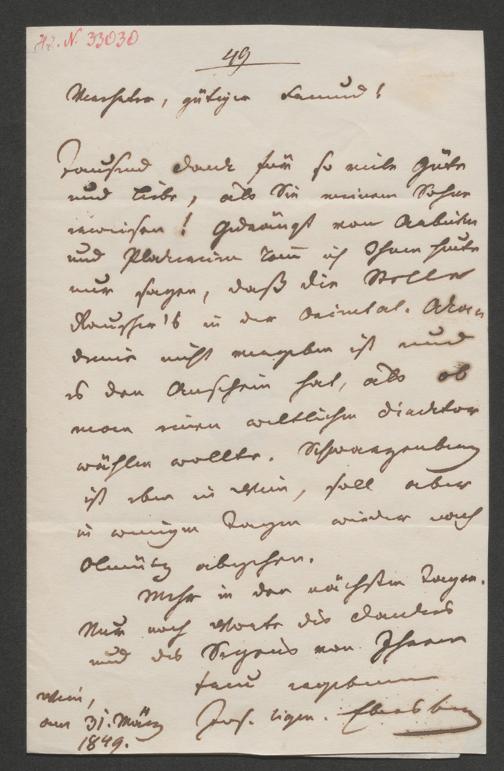 Hs. N. 33030
49
Verehrter, gütiger Freund!
Tausend Dank für so viele Güte
und Liebe, als Sie meinem Sohne
erweisen! Gedrängt von Arbeiten
und Plackereien kann ich Ihnen heute
nur sagen, daß die Stelle
Rauscher's in der oriental. Aka-
demie nicht vergeben ist und
es den Anschein hat, als ob
man einen weltlichen Direktor
wählen wollte. Schwarzenberg
ist eben in Wien, soll aber
in wenigen Tagen wieder nach
Olmütz abgehen.
Mehr in den nächsten Tagen.
Nur noch Worte des Dankes
und des Segens von Ihrem
treu ergebenen
Wien,
am 31. März
1849.
Jos. Sigm. Ebersberg